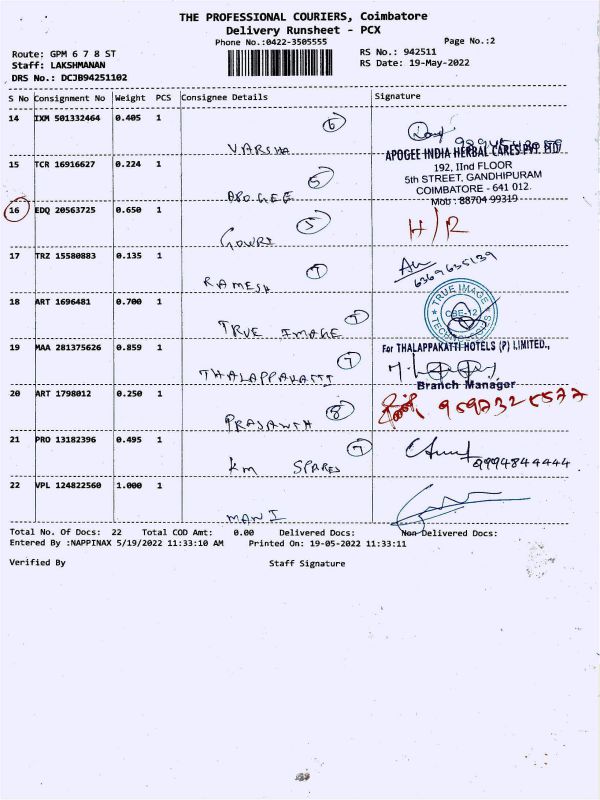 THE PROFESSIONAL COURIERS, Coimbatore
Delivery Runsheet - PCX
Phone No.:0422-3505555
Page No.:2
Route: GPM 6 7 8 ST
RS No.: 942511
Staff: LAKSHMANAN
RS Date: 19-May-2022
DRS No.: DCJB94251102
S No Consignment No Weight PCS Consignee Details Signature
14 IXM 501332464 0.405 1
6
VARSHA
APOGEE INDIA HERBAL CARES PVT. LTD
192, IInd FLOOR
5th STREET, GANDHIPURAM
COIMBATORE - 641 012.
Mob : 88704 99319
15 TCR 16916627 0.224 1
5
APOGEE
16 EDQ 20563725 0.650 1
5
GOWRI
H/R
17 TRZ 15580883 0.135 1
7
RAMESH
6369635139
18 ART 1696481 0.700 1
7
TRUE IMAGE
TRUE IMAGE
CBE-12
19 MAA 281375626 0.859 1
7
THALAPPAKATTI
For THALAPPAKATTI HOTELS (P) LIMITED.,
Branch Manager
20 ART 1798012 0.250 1
8
PRASANTH
21 PRO 13182396 0.495 1
7
KM SPARES
9994844444
22 VPL 124822560 1.000 1
MANI
Total No. Of Docs: 22 Total COD Amt: 0.00 Delivered Docs: Non Delivered Docs:
Entered By :NAPPINAX 5/19/2022 11:33:10 AM Printed On: 19-05-2022 11:33:11
Verified By Staff Signature